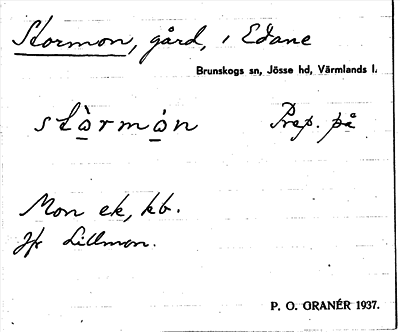 Stormon, gård, i Edane
Brunskogs sn, Jösse hd, Värmlands l.
stò̲rmò̲n Prep. på
Mon ek, kb.
Jfr Lillmon.
P. O. GRANÉR 1937.